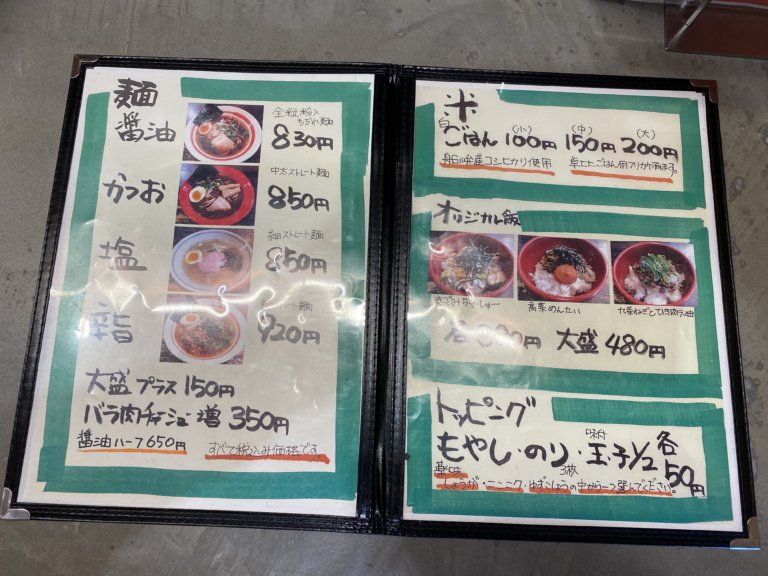 麺
醤油
全粒粉入
ちぢれ麺
830円
かつお
中太ストレート麺
850円
塩
細ストレート麺
850円
辛旨
ストレート麺
920円
大盛 プラス 150円
バラ肉チャーシュー増 350円
醤油ハーフ650円
すべて税込み価格です
米
白ごはん (小) 100円 (中) 150円 (大) 200円
産コシヒカリ使用
卓上にごはん用フリカケ有ます。
オリジナル飯
きざみちゃーしゅー
高菜めんたい
九条ねぎとひき肉ラー油
各
大盛 480円
トッピング
もやし・のり 3枚・味付玉子1/2 各50円
薬味
しょうが・ニンニク・ゆずこしょうの中から一つ選んでください。